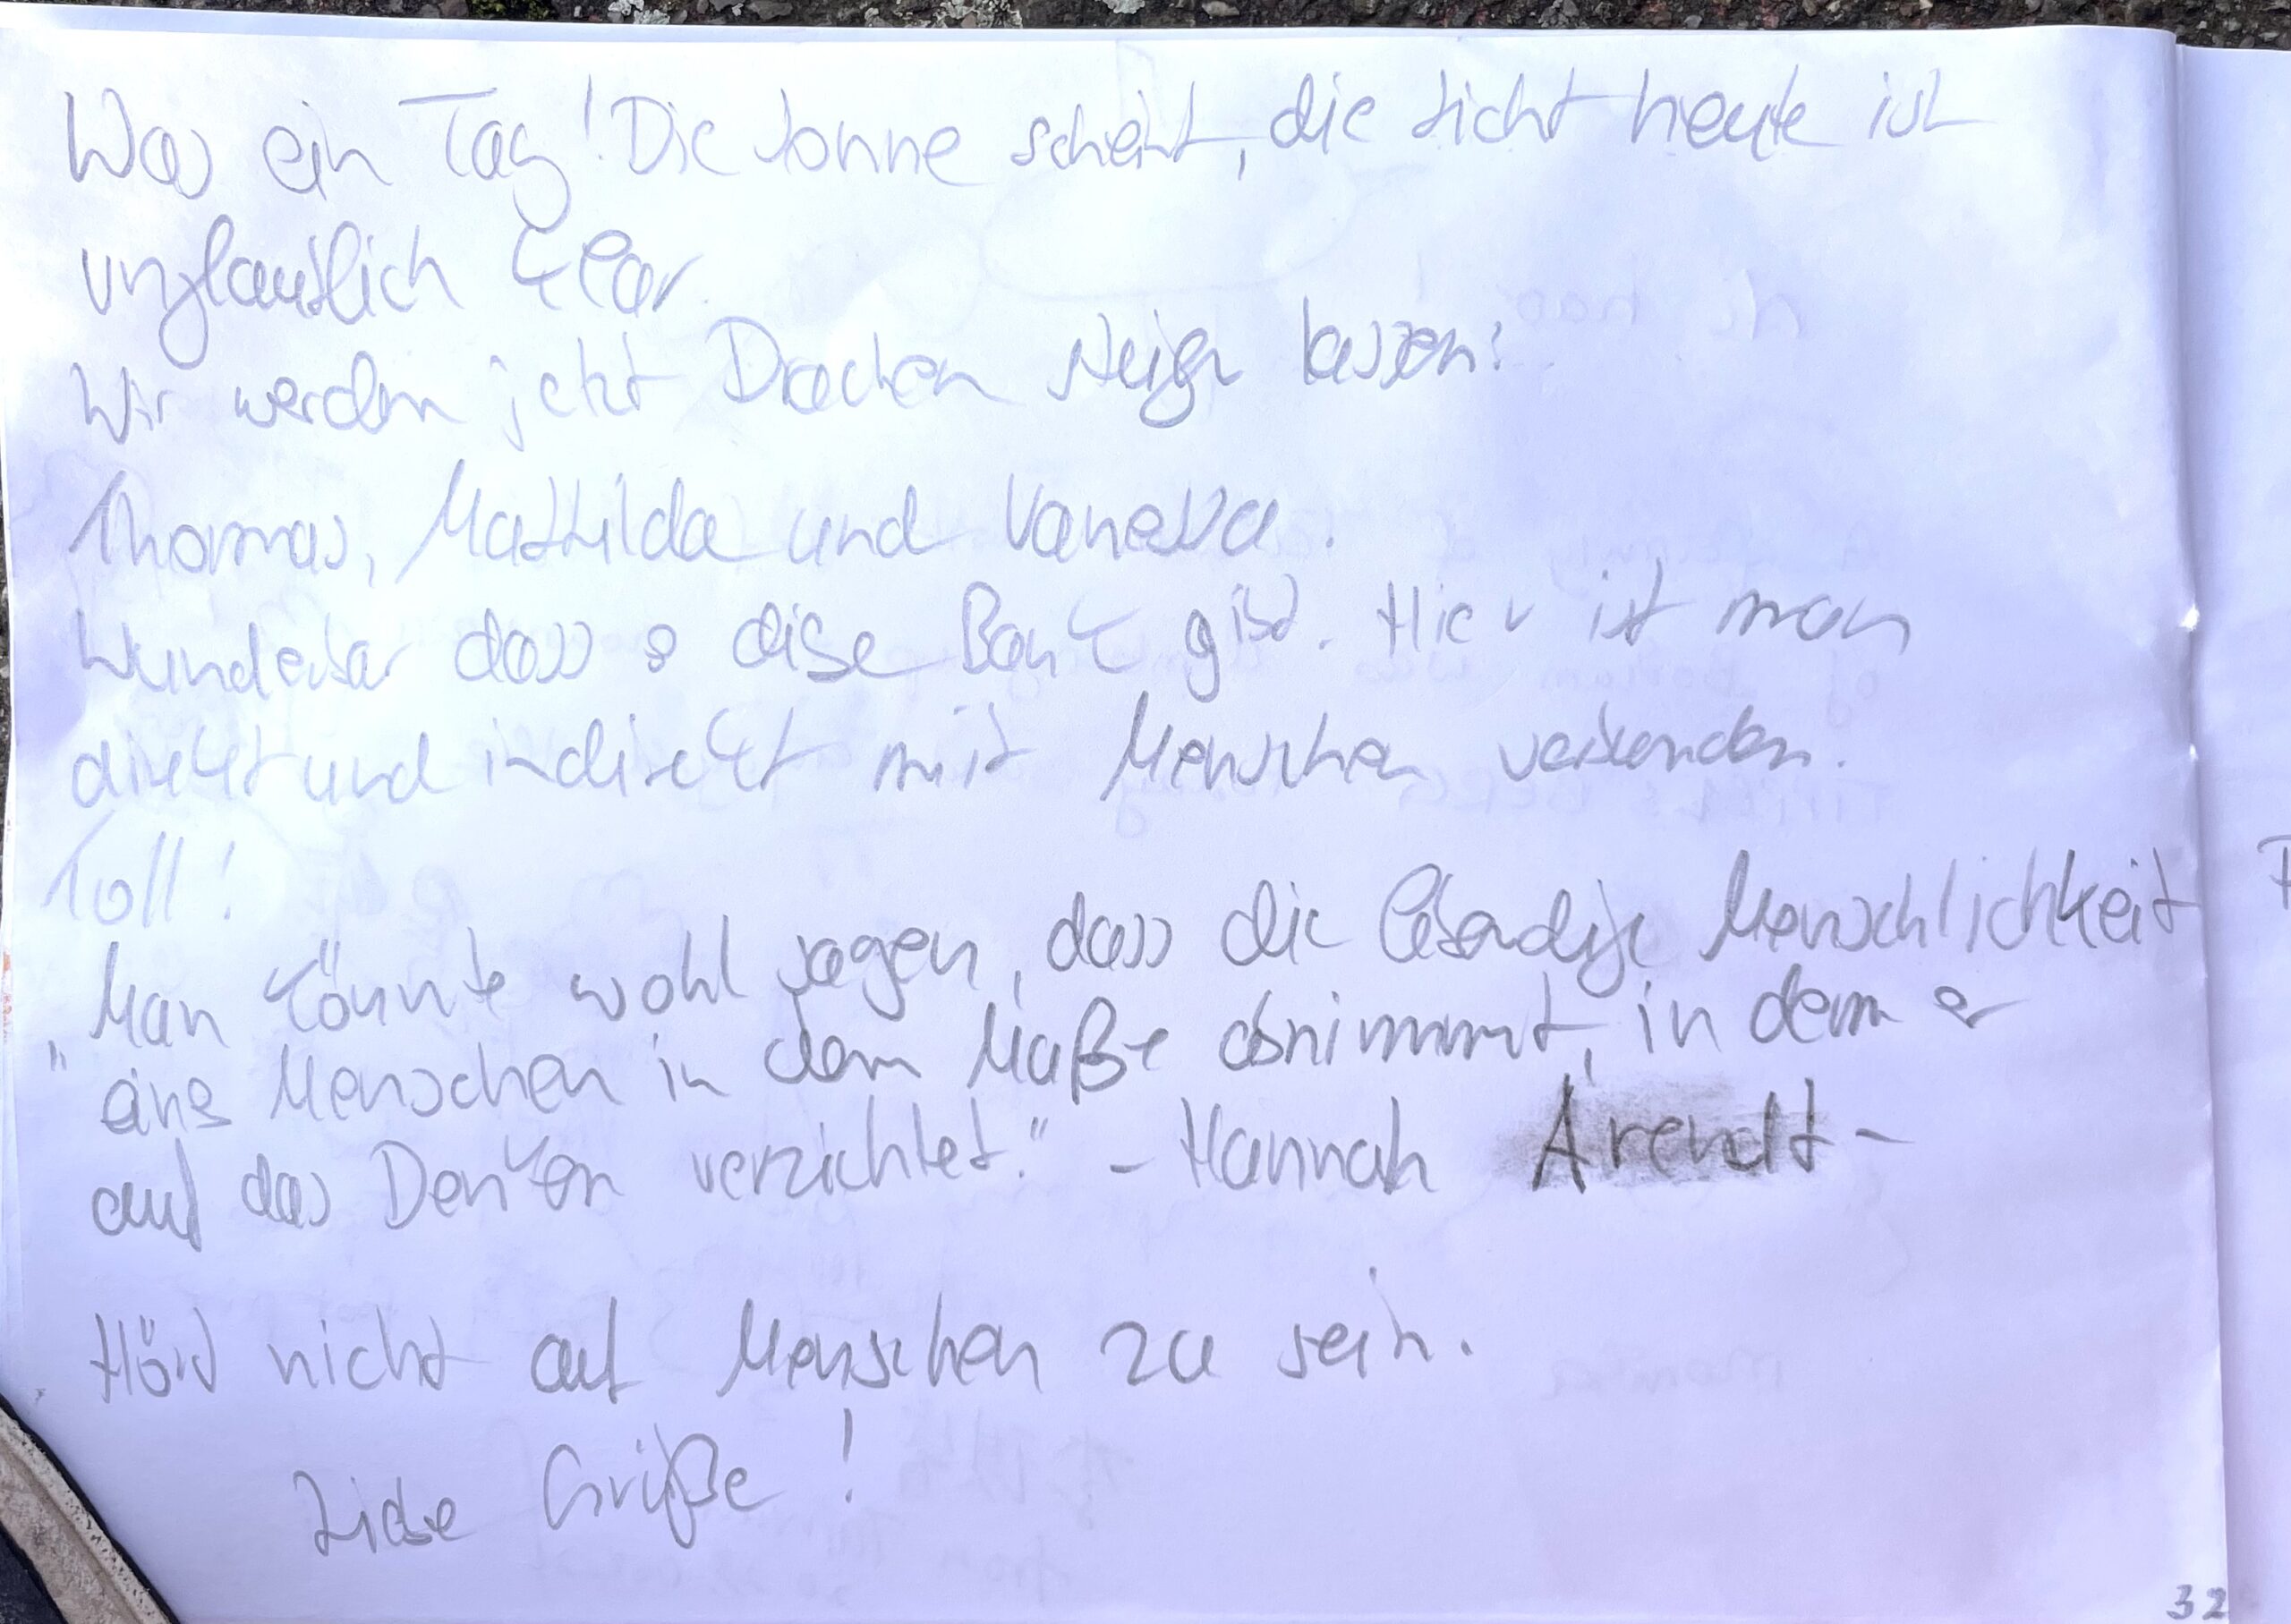 Was ein Tag! Die Sonne scheint, die Sicht heute ist
unglaublich klar.
Wir werden jetzt Drachen steigen lassen!
Thomas, Mathilda und Vanessa.
Wunderbar dass es diese Bank gibt. Hier ist man
direkt und indirekt mit Menschen verbunden.
Toll!
Man könnte wohl sagen, dass die lebendige Menschlichkeit
"eines Menschen in dem Maße abnimmt, in dem er
auf das Denken verzichtet." - Hannah Arendt -
Hört nicht auf Menschen zu sein.
Liebe Grüße!
32